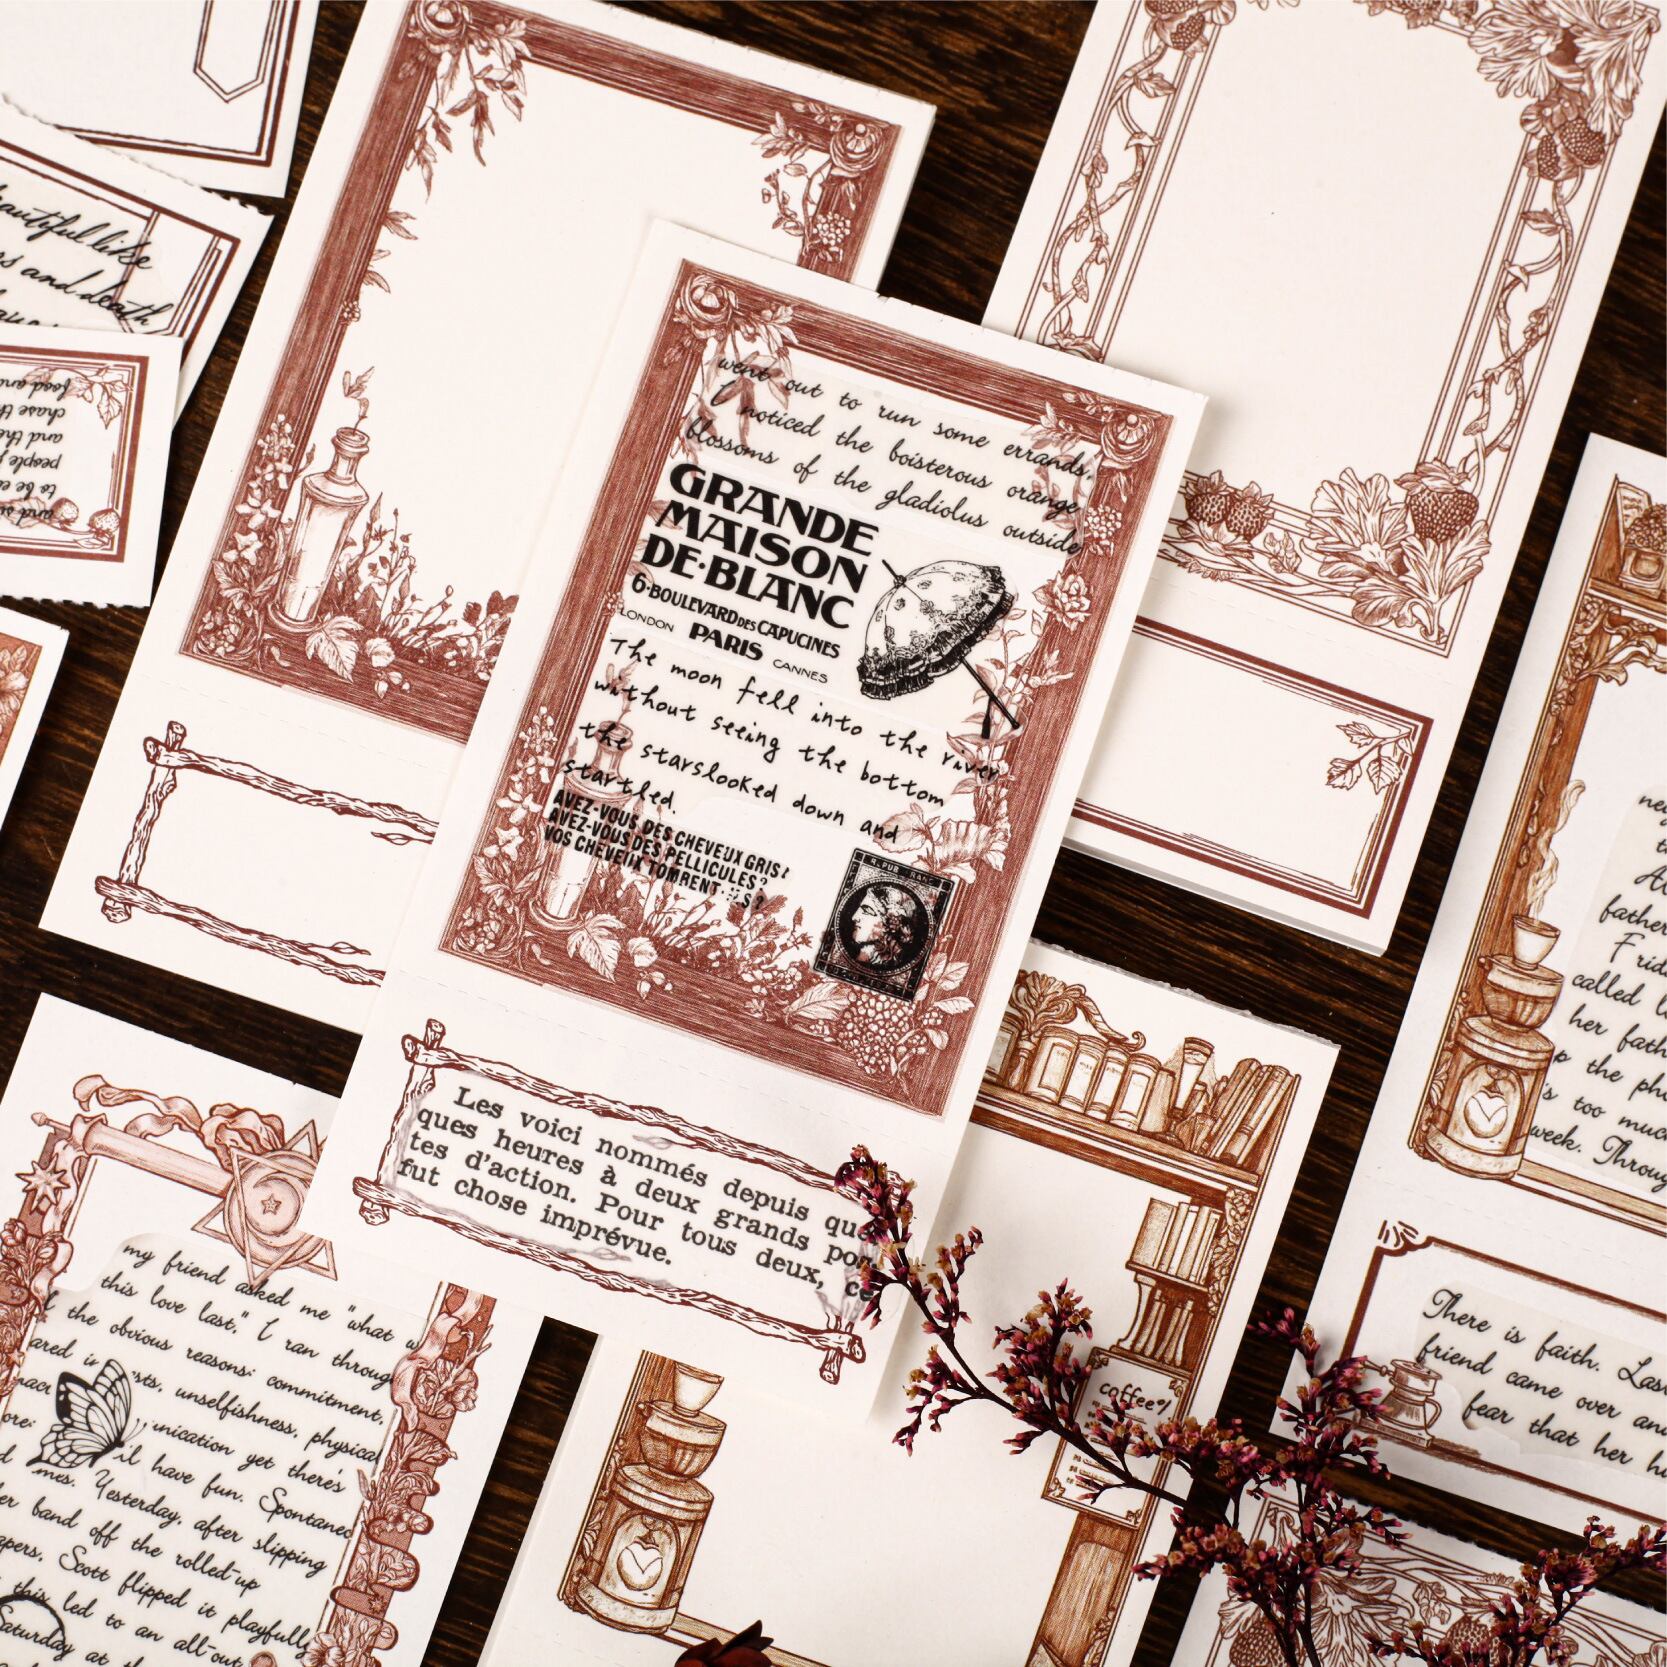 went out to run some errands,
I noticed the boisterous orange
blossoms of the gladiolus outside
GRANDE
MAISON
DE·BLANC
6·BOULEVARD DES CAPUCINES
LONDON PARIS CANNES
The moon fell into the river
without seeing the bottom
the starslooked down and
startled.
AVEZ-VOUS DES CHEVEUX GRIS?
AVEZ-VOUS DES PELLICULES?
VOS CHEVEUX TOMRENT-
Les voici nommés depuis que
ques heures à deux grands pos
tes d'action. Pour tous deux, ce
fut chose imprévue.
beautiful like
and death
food and
chase th
and the
people
to be e
and s
my friend asked me "what w
this love last," I ran throug
the obvious reasons: commitment,
unselfishness, physical
unication yet there's
il have fun. Spontaneo
mes. Yesterday, after slipping
er band off the rolled-up
apers, Scott flipped it playfully
this led to an all-out
Saturday at th
coffee
father
Frid
called
her fath
p the ph
's too muc
week. Throug
There is faith. Las
friend came over an
fear that her h